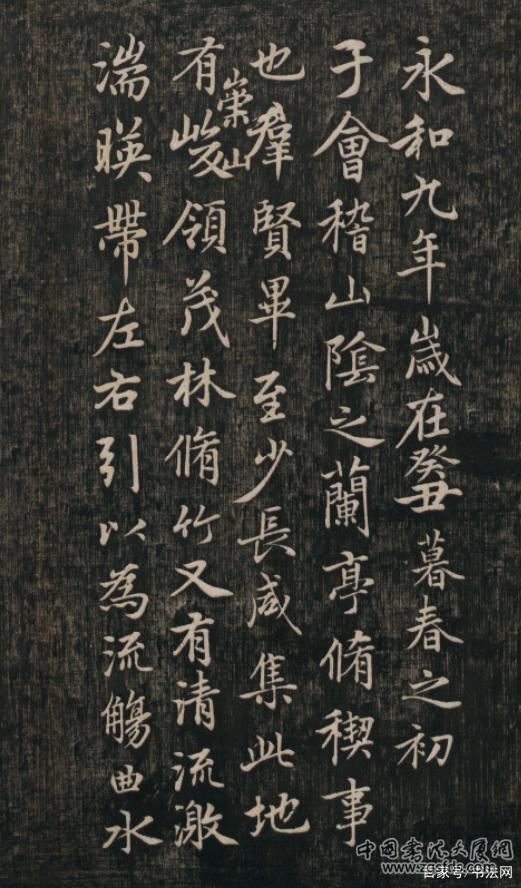 永和九年歲在癸丑暮春之初
于會稽山陰之蘭亭脩稧事
也羣賢畢至少長咸集此地
有崇山峻領茂林脩竹又有清流激
湍暎帶左右引以為流觴曲水
中国书法文展網
www.zgsfds.com
百家号/书法网